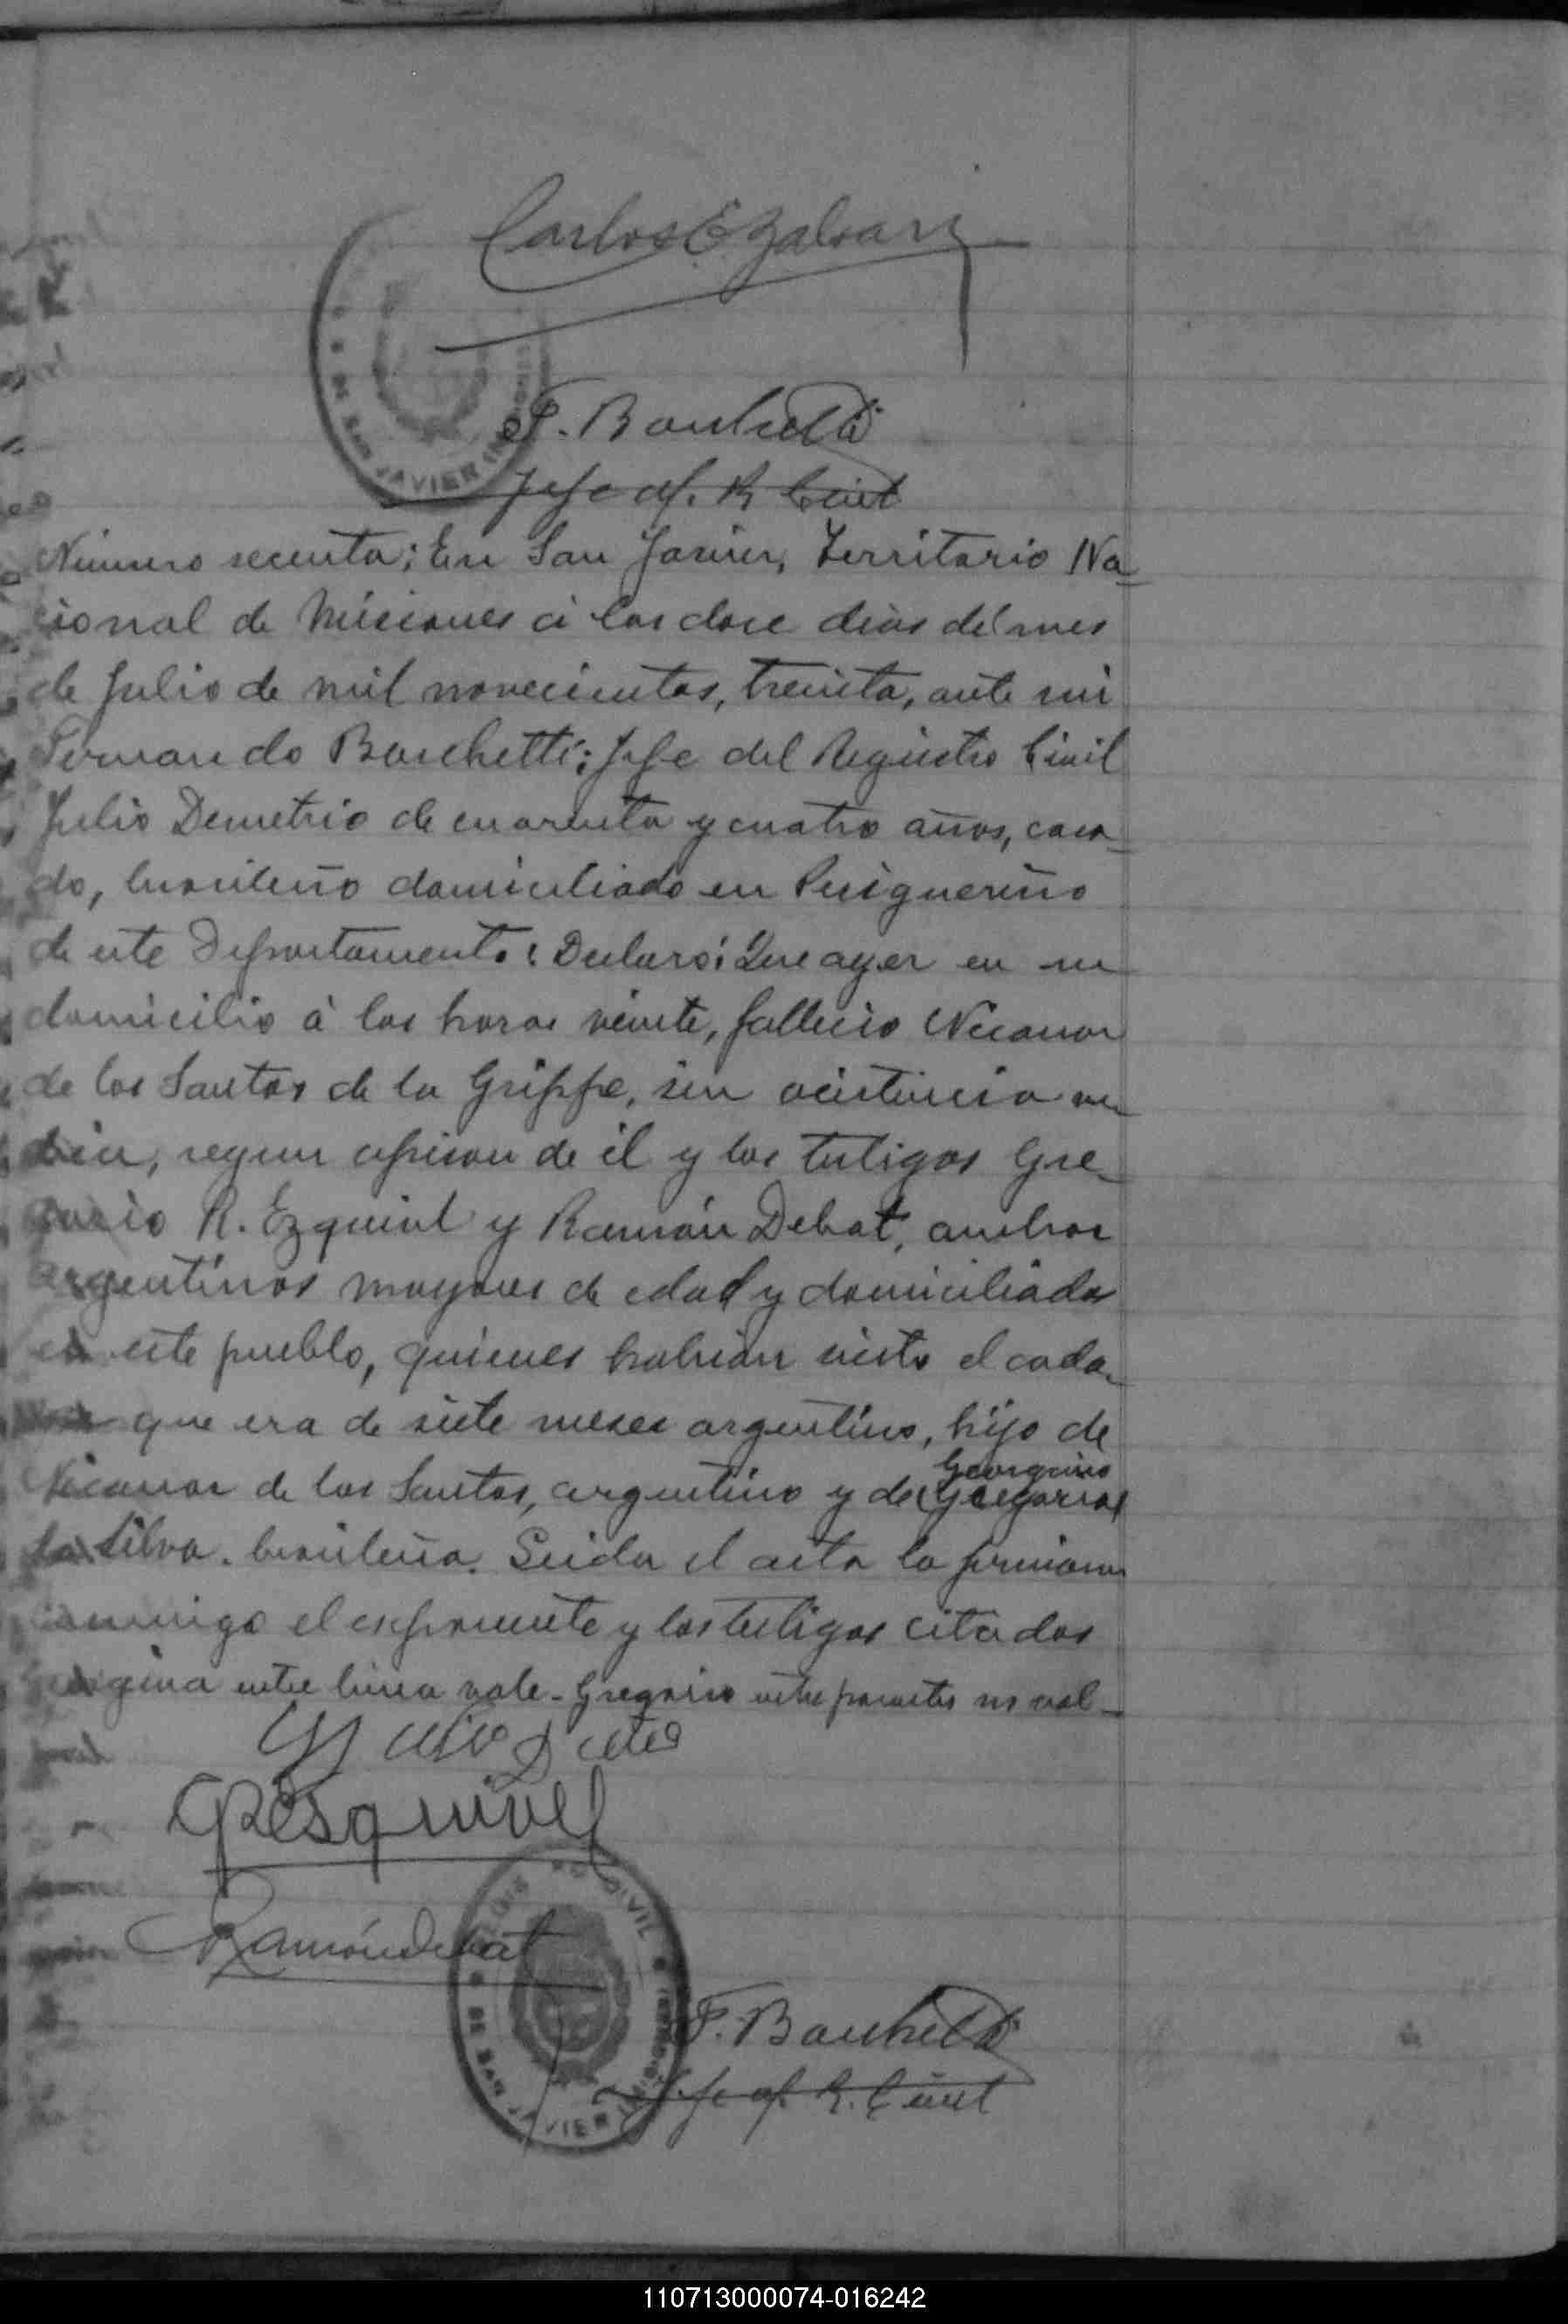 Carlos E. Galvan
DE SAN JAVIER
F. Banchetti
Jefe of. R Civil
Número secenta; En San Javier, Territorio Na-
cional de Miciones á los doce dias del mes
de Julio de mil novecientos, treinta, ante mi
Fernando Banchetti; Jefe del Registro Civil
Julio Demetrio de cuarenta y cuatro años, casa-
do, brasileño domiciliado en
de este Departamento: Declaró: Que ayer en su
domicilio á las horas veinte, fallecio Nicanor
de los Santos de la Grippe, sin acistencia me-
dica, segun espresan de él y los testigos Gre-
gorio R. Ezquivel y Ramón Debat, ambos
argentinos mayores de edad y domiciliados
en este pueblo, quienes habian visto el cada-
ver que era de siete meses argentino, hijo de
Georgina
Nicanor de los Santos, argentino y de (Gregoria)
da Silva. brasileña. Leida el acta la firmaron
conmigo el esponente y los testigos citados
Georgina entre linea vale - Gregoria entre parentes no val-
GREsquivel
Ramón Debat
REGISTRO CIVIL
DE SAN JAVIER
F. Banchetti
Jefe of. R. Civil
110713000074-016242